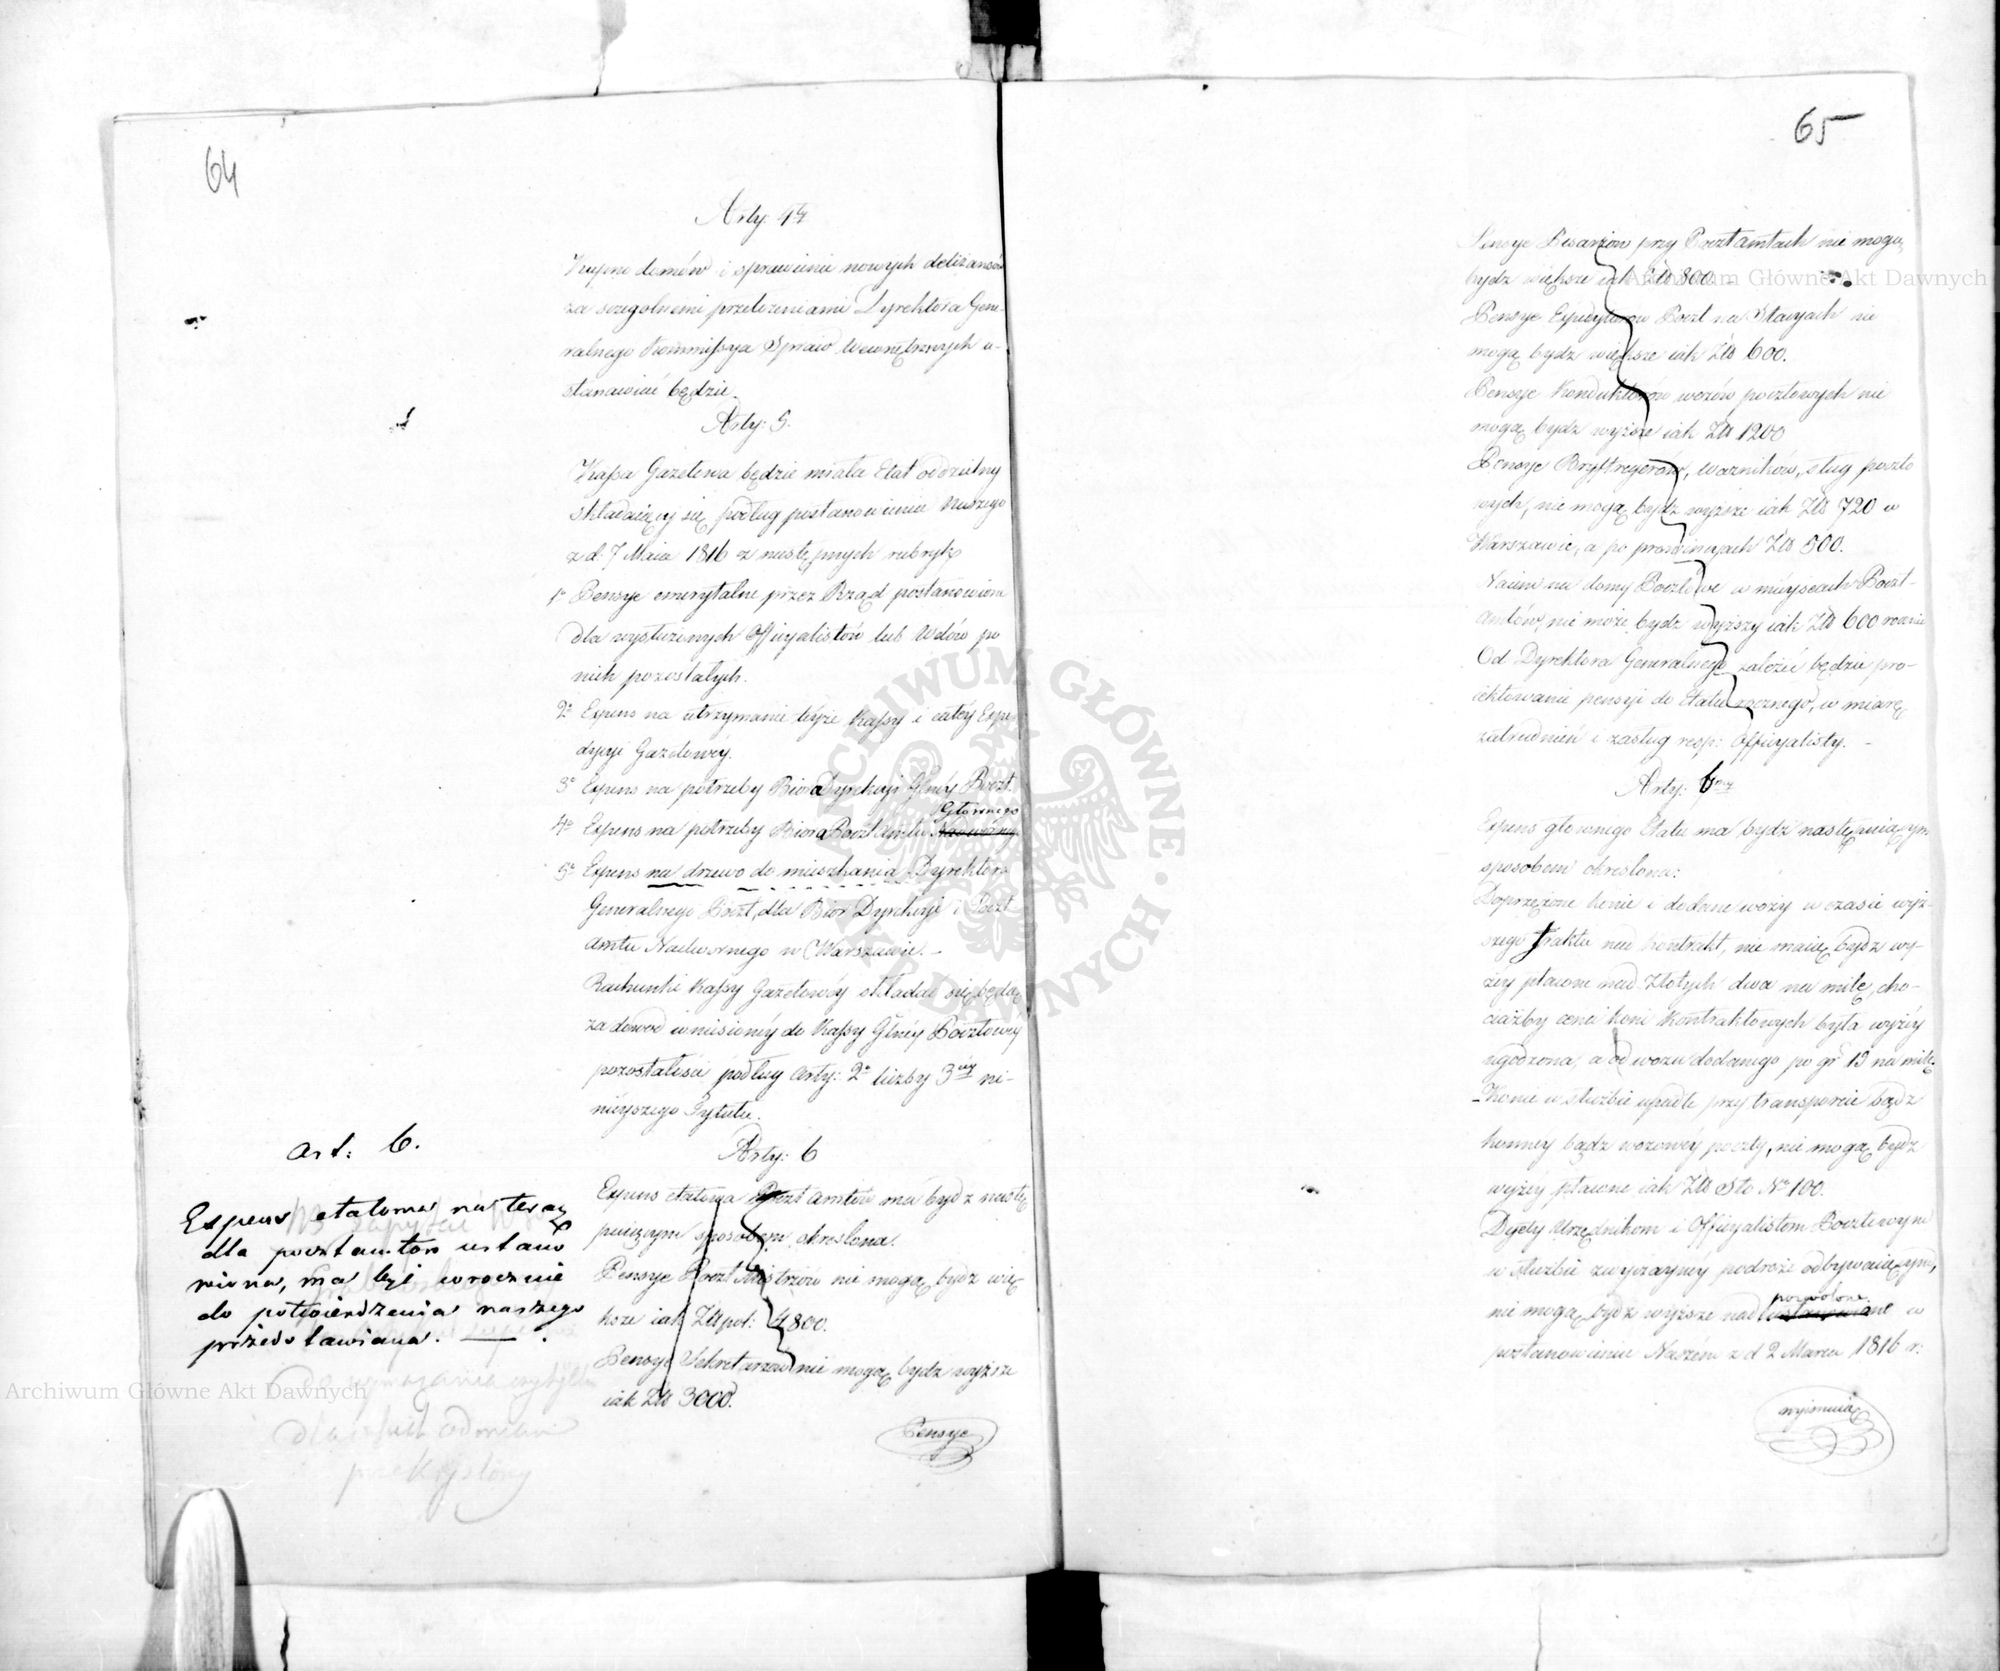 64
Arty: 4
Kupno domów i sprawienie nowych deliżansów
za szczególnemi przełożeniami Dyrektora Gene-
ralnego Kommissya Spraw Wewnętrznych u-
stanawiać będzie.
Arty: 5.
Kassa Gazetowa będzie miała Etat oddzielny
składaiący się, podług postanowienia Naszego
z d: 7 Maia 1816 z nastę pnych rubryk
1o Pensye emerytalne przez Rząd postanowione
dla wysłużonych Officyalistów lub Wdów po
nich pozostałych.
2o Expens na utrzymanie teyże Kassy i całey Expe-
dycyi Gazetowéy.
3o Expens na potrzeby Biora Dyrekcyi Głney Poczt.
Głównego
4o Expens na potrzeby Biora Pocztamtu
5o Expens na drzewo do mieszkania Dyrektora
Generalnego Poczt, dla Bior Dyrekcyi i Poczt
amtu Nadwornego w Warszawie. -
Rachunki Kassy Gazetowéy składać się będą
za dowod wniesioney do Kassy Głnéy Pocztowey
pozostałości podług Arty: 2o liczby 3ciey ni-
nieyszego Tytułu.
Arty: 6
Expens etatowa Poczt amtów ma bydz nastę
puiącym sposobem okreslona.
Pensye Poczt Mistrzów nie mogą bydz wię
ksze iak Złł pol: 4800.
Pensye Sekretarzów nie mogą bydz wyższe
iak Złł 3000.
Pensye
Art: 6.
Expens etatowa na teraz
dla pocztamtow ustano
wiona, ma być corocznie
do potwierdzenia naszego
przedstawiana.
65
Pensye Pisarzów przy Pocztamtach nie mogą
bydz większe iak Złł 800. -
Pensye Expedytorów Poczt na Stacyach nie
mogą bydz większe iak Złł 600.
Pensye Konduktorów wozów pocztowych nie
mogą bydz wyższe iak Złł 1200
Pensye Bryftregerów, woźników, sług poczto
wych, nie mogą bydz wyższe iak Złł 720 w
Warszawie, a po prowincyach Złł 500.
Naiem na domy Pocztowe w mieyscach Poczt-
amtów, nie może bydz wyższy iak Złł 600 rocznie
Od Dyrektora Generalnego zależeć będzie pro-
iektowanie pensyi do Etatu rocznego, w miarę
zatrudnień i zasług resp: Officyalisty. -
Arty:
Expens głownego Etatu ma bydz następuiącym
sposobem okreslona:
Doprzężone konie i dodane wozy w czasie wyż-
szego Traktu nad kontrakt, nie maią bydz wy-
żéy płacone nad Złotych dwa na milę, cho-
ciażby cena koni Kontraktowych była wyżéy
ugodzona, a od wozu dodanego po gr 15 na milę.
Konie w służbie upadłe przy transporcie bądz
konney bądz wozowéy poczty, nie mogą bydz
wyżéy płacone iak Złł Sto No 100.
Dyety Urzędnikom i Officyalistom Pocztowym
w służbie zwyczayney podroże odbywaiącym,
pozwolone
nie mogą bydz wyższe nad ustanowione w
postanowieniu Naszém z d 2 Marca 1816 r:
wyiąwszy
Archiwum Główne Akt Dawnych
Archiwum Główne Akt Dawnych
ARCHIWUM GŁÓWNE AKT DAWNYCH